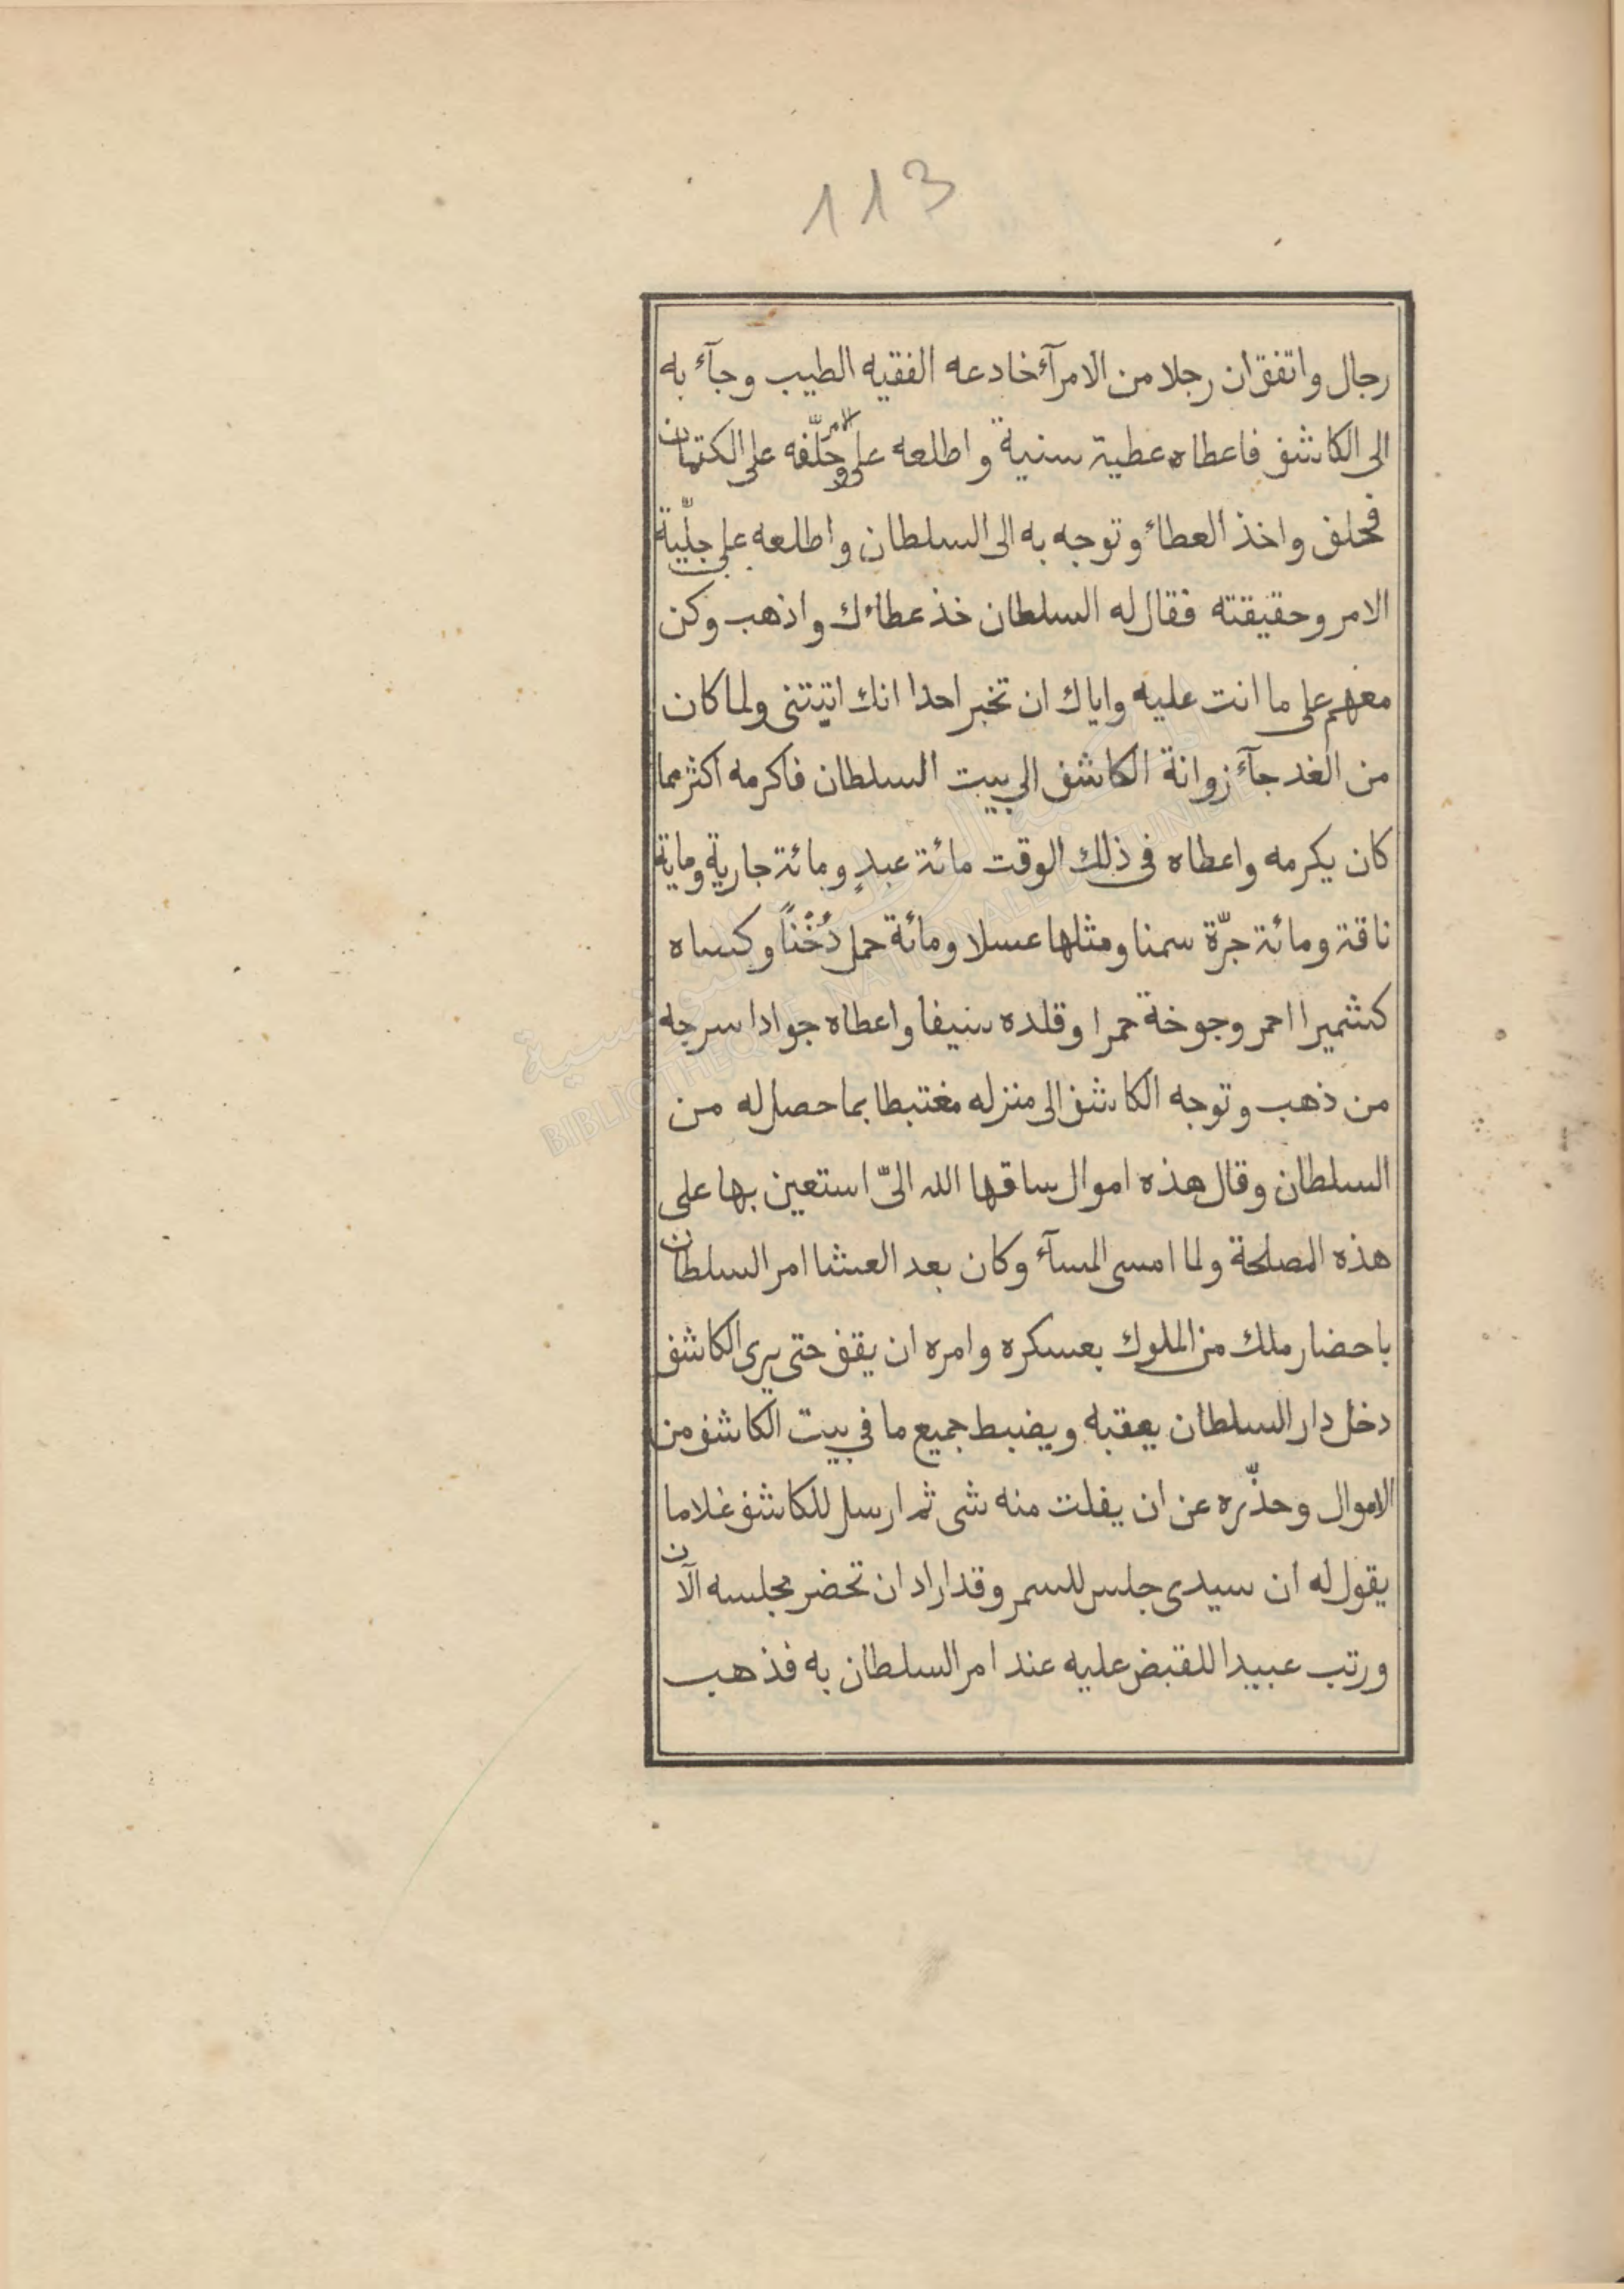 113
رجال واتفق ان رجلا من الامرآء خادعه الفقيه الطيب وجآء به
الى الكاشف فاعطاه عطية سنية واطلعه على الامر وحلّفه على الكتمان
فحلف واخذ العطاء وتوجه به الى السلطان واطلعه على جلّية
الامر وحقيقته فقال له السلطان خذ عطاءك واذهب وكن
معهم على ما انت عليه واياك ان تخبر احدا انك اتيتنى ولما كان
من الغد جآء زوانة الكاشف الى بيت السلطان فاكرمه اكثر مما
كان يكرمه واعطاه فى ذلك الوقت مائة عبدٍ ومائة جارية وماية
ناقة ومائة جرّة سمنا ومثلها عسلا ومائة حمل دُخْناً وكساه
كشميرا احمر وجوخة حمرا وقلده سيفا واعطاه جوادا سرجه
من ذهب وتوجه الكاشف الى منزله مغتبطا بما حصل له من
السلطان وقال هذه اموال ساقها الله الىّ استعين بها على
هذه المصلحة ولما امسى المسآء وكان بعد العشا امر السلطان
باحضار ملك من الملوك بعسكره وامره ان يقف حتى يرى الكاشف
دخل دار السلطان يعقبه ويضبط جميع ما فى بيت الكاشف من
الاموال وحذّره عن ان يفلت منه شى ثم ارسل للكاشف غلاما
يقول له ان سيدى جلس للسمر وقد اراد ان تحضر مجلسه الآن
ورتب عبيدا للقبض عليه عند امر السلطان به فذهب